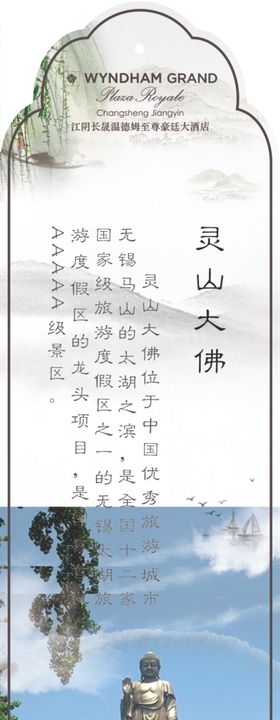 WYNDHAM GRAND
Plaza Royale
Changsheng Jiangyin
江阴长晟温德姆至尊豪廷大酒店
灵山大佛
灵山大佛位于中国优秀旅游城市
无锡马山的太湖之滨,是全国十二家
国家级旅游度假区之一的无锡太湖旅
游度假区的龙头项目,是
AAAAA级景区。